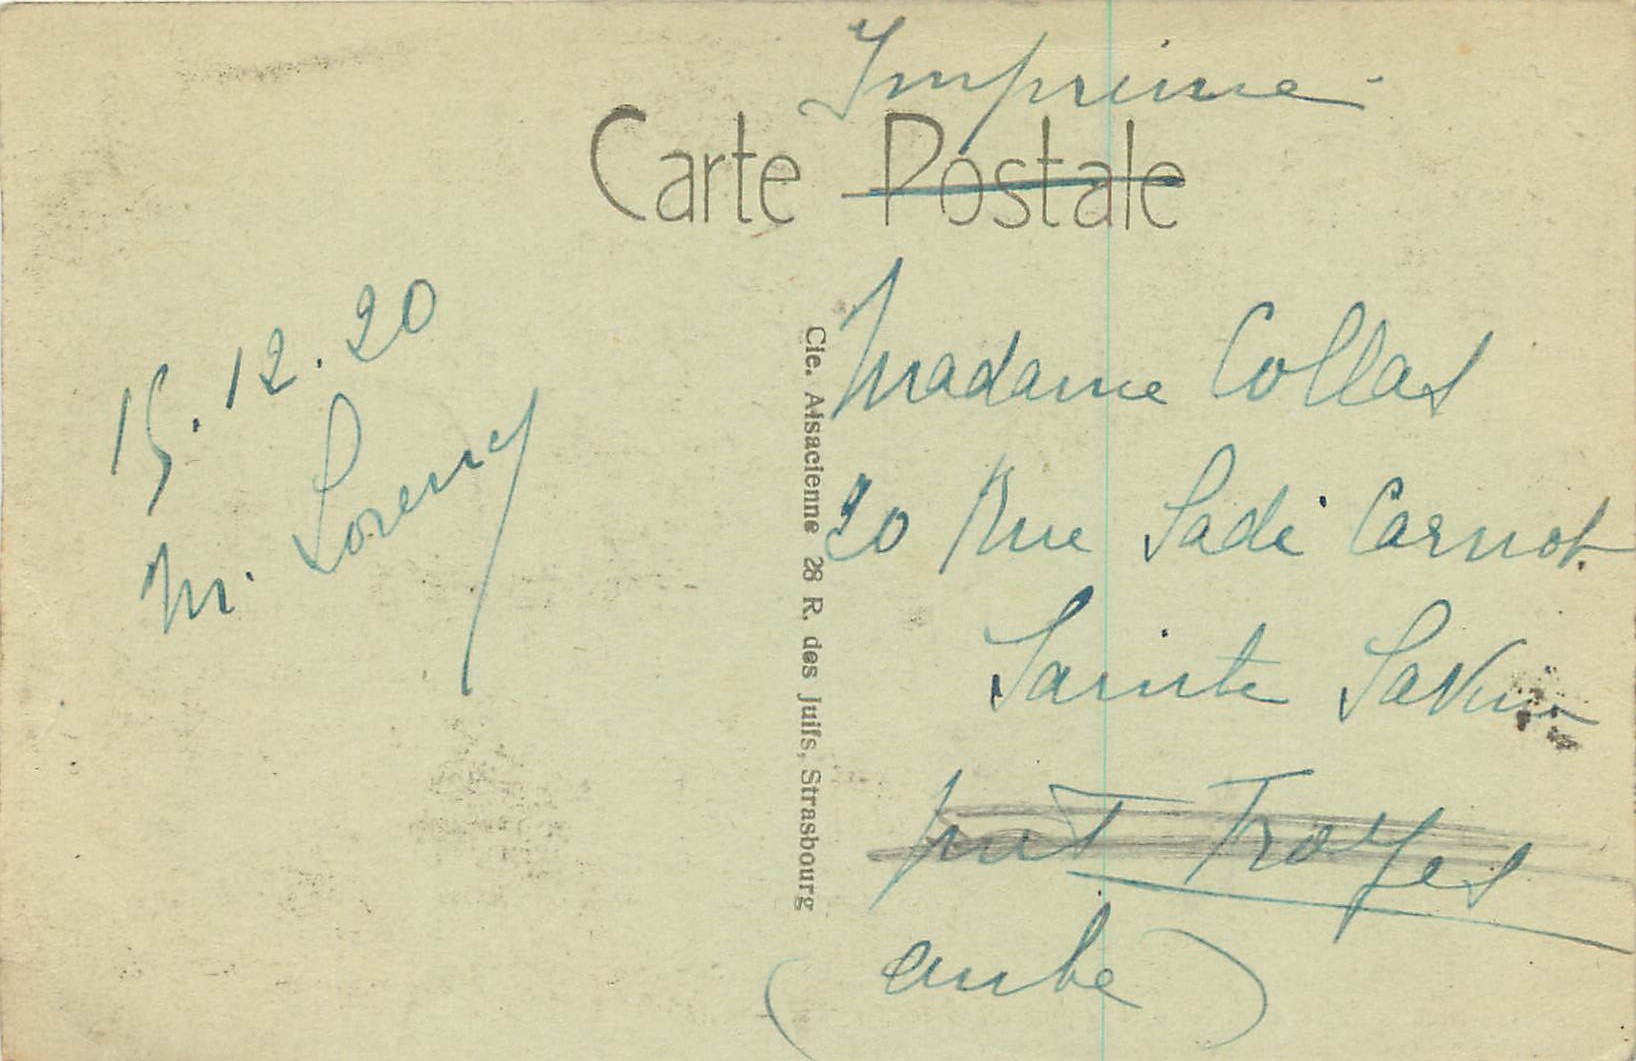 Imprimé
Carte Postale
15.12.20
M. Loreny
Cie. Alsacienne 28 R. des Juifs, Strasbourg
Madame Collas
20 Rue Sadi Carnot.
Sainte Savine
près Troyes
(aube)